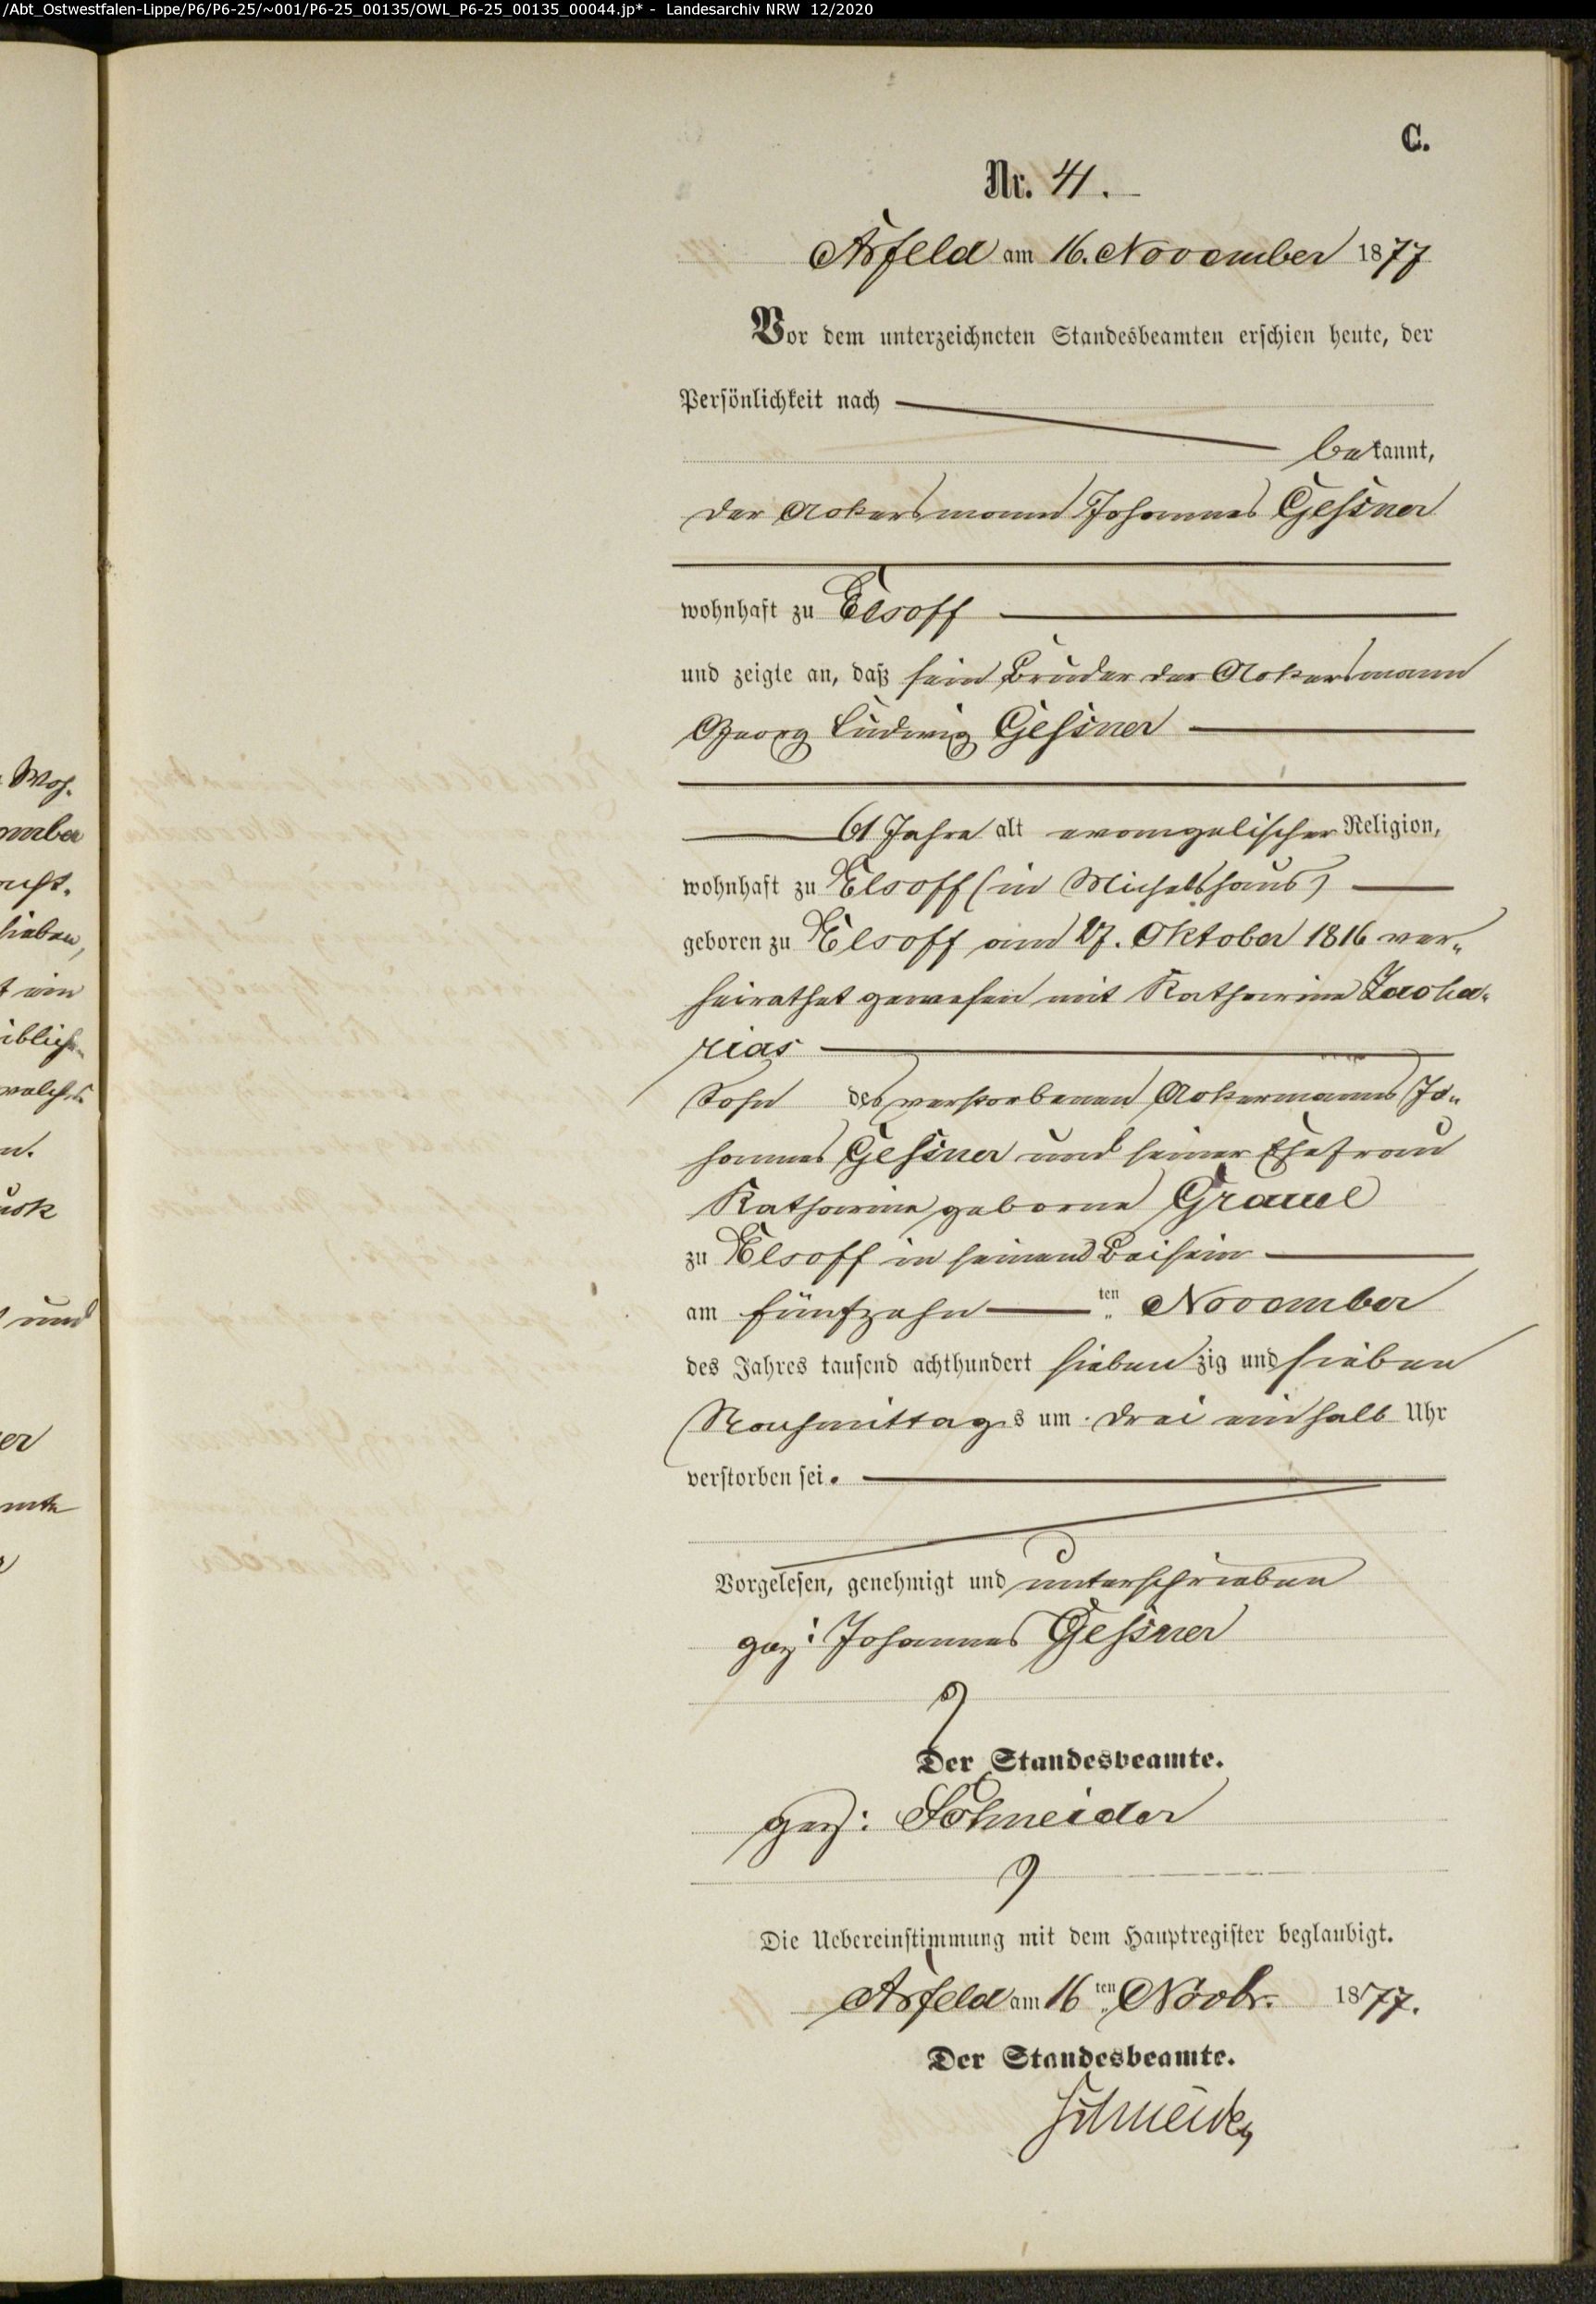 /Abt_Ostwestfalen-Lippe/P6/P6-25/~001/P6-25_00135/OWL_P6-25_00135_00044.jp* - Landesarchiv NRW 12/2020
C.
Nr. 41.
Arfeld am 16. November 1877
Vor dem unterzeichneten Standesbeamten erschien heute, der
Persönlichkeit nach
bekannt,
der Ackersmann Johannes Geßner
wohnhaft zu Elsoff
und zeigte an, daß sein Bruder der Ackersmann
Georg Ludwig Geßner
61 Jahre alt evangelischer Religion,
wohnhaft zu Elsoff (in Michelshaus)
geboren zu Elsoff am 27. Oktober 1816 ver„
heirathet gewesen mit Katharine Zacha„
rias
Sohn des verstorbenen Ackermanns Jo„
hannes Geßner und seiner Ehefrau
Katharine geborne Grauel
zu Elsoff in seinem Beisein
am fünfzehn ten November
des Jahres tausend achthundert siebenzig und sieben
Nachmittags um drei ein halb Uhr
verstorben sei.
Vorgelesen, genehmigt und unterschrieben
gez: Johannes Geßner
Der Standesbeamte.
gez: Schneider
Die Uebereinstimmung mit dem Hauptregister beglaubigt.
Arfeld am 16 ten Novbr. 1877.
Der Standesbeamte.
Schneider
Woh.
ember
lieben,
t ein
iblich
welches
n.
t und
er
mte